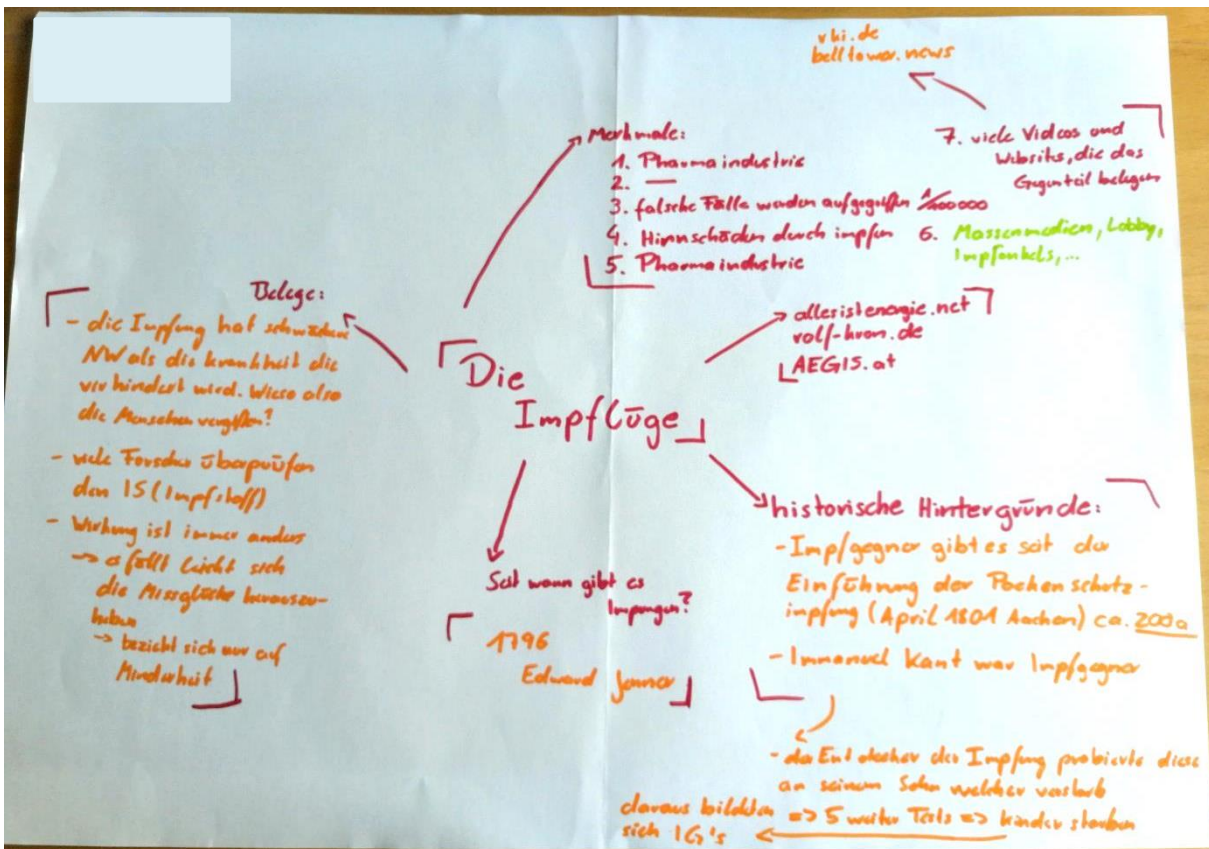 rki.de
belltower.news
Merkmale:
1. Pharmaindustrie
2. —
3. falsche Fälle werden aufgegriffen 1/100000
4. Hirnschäden durch impfen
5. Pharmaindustrie
6. Massenmedien, Lobby,
7. viele Videos und
Websites, die das
Gegenteil belegen
Die
Impflüge
allesistenergie.net
rolf-kron.de
AEGIS.at
Belege:
- die Impfung hat schwächere
NW als die krankheit die
verhindert wird. Wieso also
die Menschen vergiften?
- viele Forscher überprüfen
den IS (Impfstoff)
- Wirkung ist immer anders
-> es fällt leicht sich
die Missglückte herauszu-
heben
-> bezieht sich nur auf
Minderheit
Seit wann gibt es
Impungen?
1796
Edward Jenner
historische Hintergründe:
- Impfgegner gibt es seit der
Einführung der Pockenschutz-
impfung (April 1801 Aachen) ca. 200a
- Immanuel Kant war Impfgegner
- der Entdecker der Impfung probierte diese
an seinem Sohn welcher verstarb
=> 5 weiter Tests => kinder starben
daraus bildeten
sich IG's